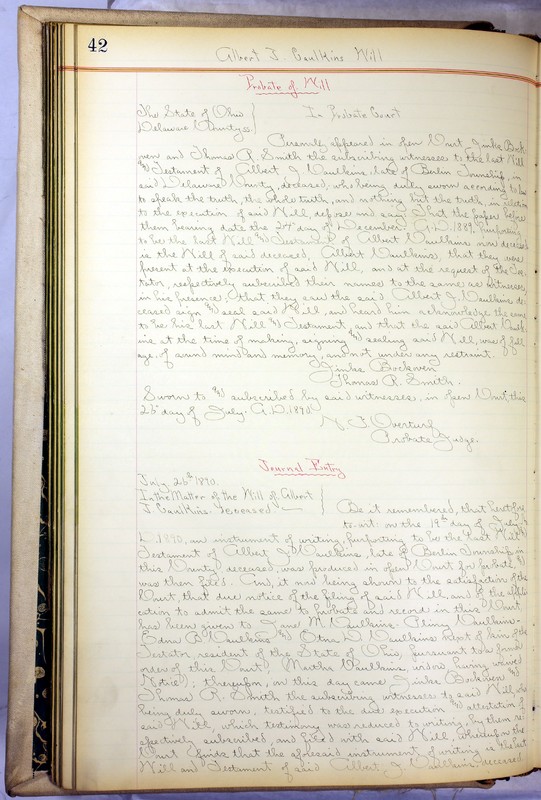 42
Albert J. Caulkins Will
Probate of Will
The State of Ohio } In Probate Court
Delaware County ss. }
Personally appeared in open Court, Jinks Bock
oven and Thomas R. Smith the subscribing witnesses to the last Will
& Testament of Albert J. Caulkins, late of Berlin Township, in
said Delaware County, deceased, who being duly sworn according to law
to speak the truth, the whole truth, and nothing but the truth, in relation
to the execution of said Will, depose and say: That the paper before
them bearing date the 24" day of December A.D. 1889, purporting
to be the last Will & Testament of Albert Caulkins now deceased
is the Will of said deceased, Albert Caulkins, that they were
present at the execution of said Will, and at the request of the Tes-
tator, respectively subscribed their names to the same as witnesses
in his presence; that they saw the said Albert J. Caulkins de-
ceased sign & seal said Will, and heard him acknowledge the same
to be his last Will & Testament, and that the said Albert Caulk
ins at the time of making, signing & sealing said Will, was of full
age, of sound mind and memory, and not under any restraint.
Jinks Bockoven
Thomas R. Smith.
Sworn to & subscribed by said witnesses, in open Court, this
day of July. A.D. 1890
N. F. Overturf
Probate Judge.
Journal Entry
July 1890.
In the Matter of the Will of Albert }
J. Caulkins. deceased }
Be it remembered, that heretofore,
to-wit: on the 19th day of July
A.D. 1890, an instrument of writing, purporting to be the last Will &
Testament of Albert J. Caulkins, late of Berlin Township in
this County deceased, was produced in open Court for probate, &
was then filed. And, it now being shown to the satisfaction of the
Court, that due notice of the filing of said Will, and of the appli
cation to admit the same to probate and record in this Court
has been given to Jane M. Caulkins - Pliny Caulkins -
Edna B Caulkins & Otna D Caulkins next of kin of the
Testator, resident of the State of Ohio, pursuant to a former
order of this Court, Martha Caulkins, widow having waived
Notice); thereupon, on this day came Jinks Bockoven &
Thomas R. Smith the subscribing witnesses to said Will, who
being duly sworn, testified to the due execution & attestation of
said Will, which testimony was reduced to writing, by them res
pectively subscribed and filed with said Will. Whereupon the
Court finds, that the aforesaid instrument of writing is the last
Will and Testament of said Albert J. Caulkins, deceased